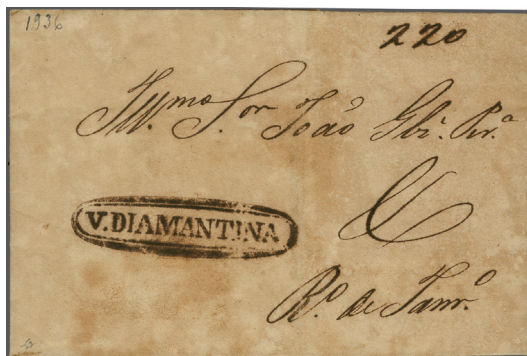 1936
220
Ill.mo S.or João Glz. Per.ª
V. DIAMANTINA
R.o de Janr.o